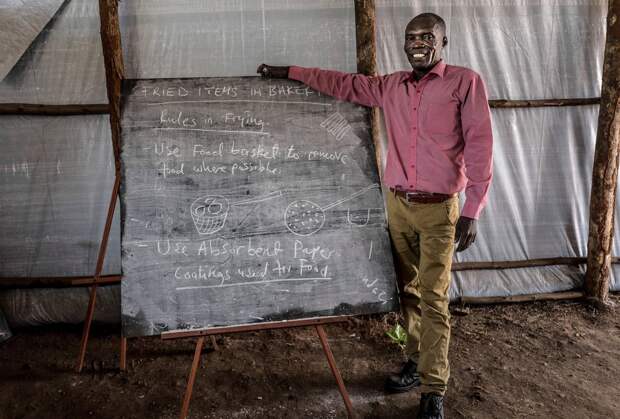 FRIED ITEMS IN BAKERY
Rules in Frying.
- Use Food basket to remove
food where possible.
- Use Absorbent Paper
Coatings used for Food